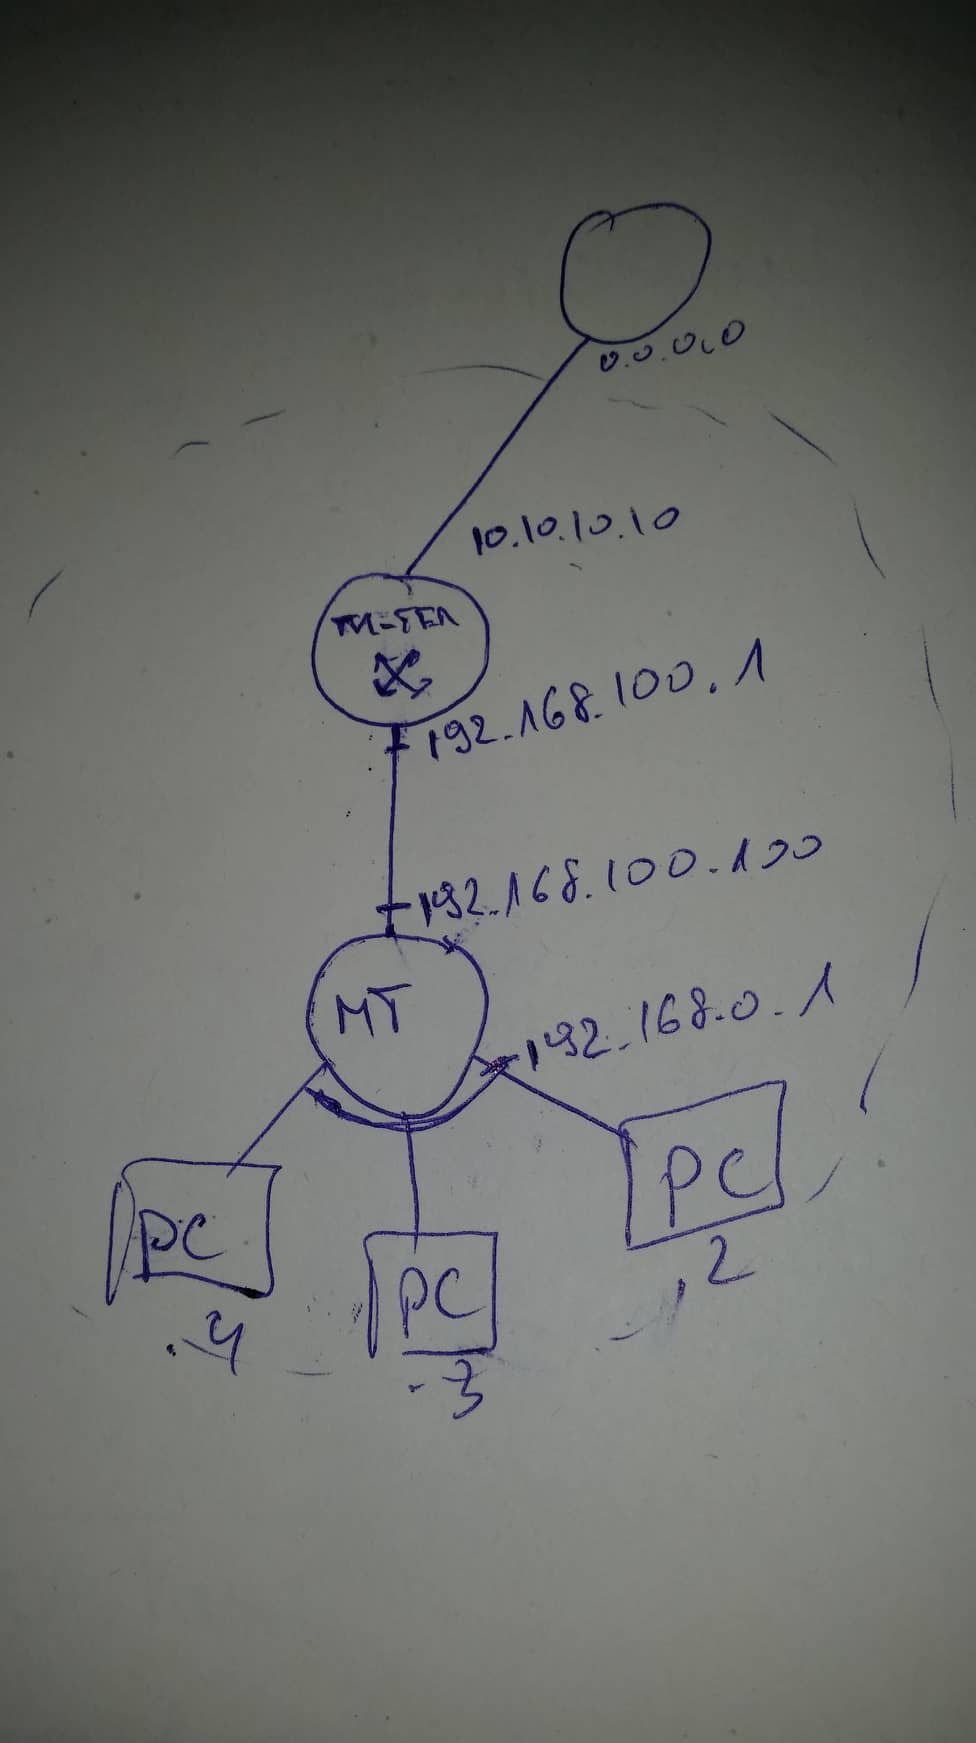 0.0.0.0
10.10.10.10
192.168.100.1
192.168.100.100
MT
192.168.0.1
PC
PC
PC
.2
.4
.3